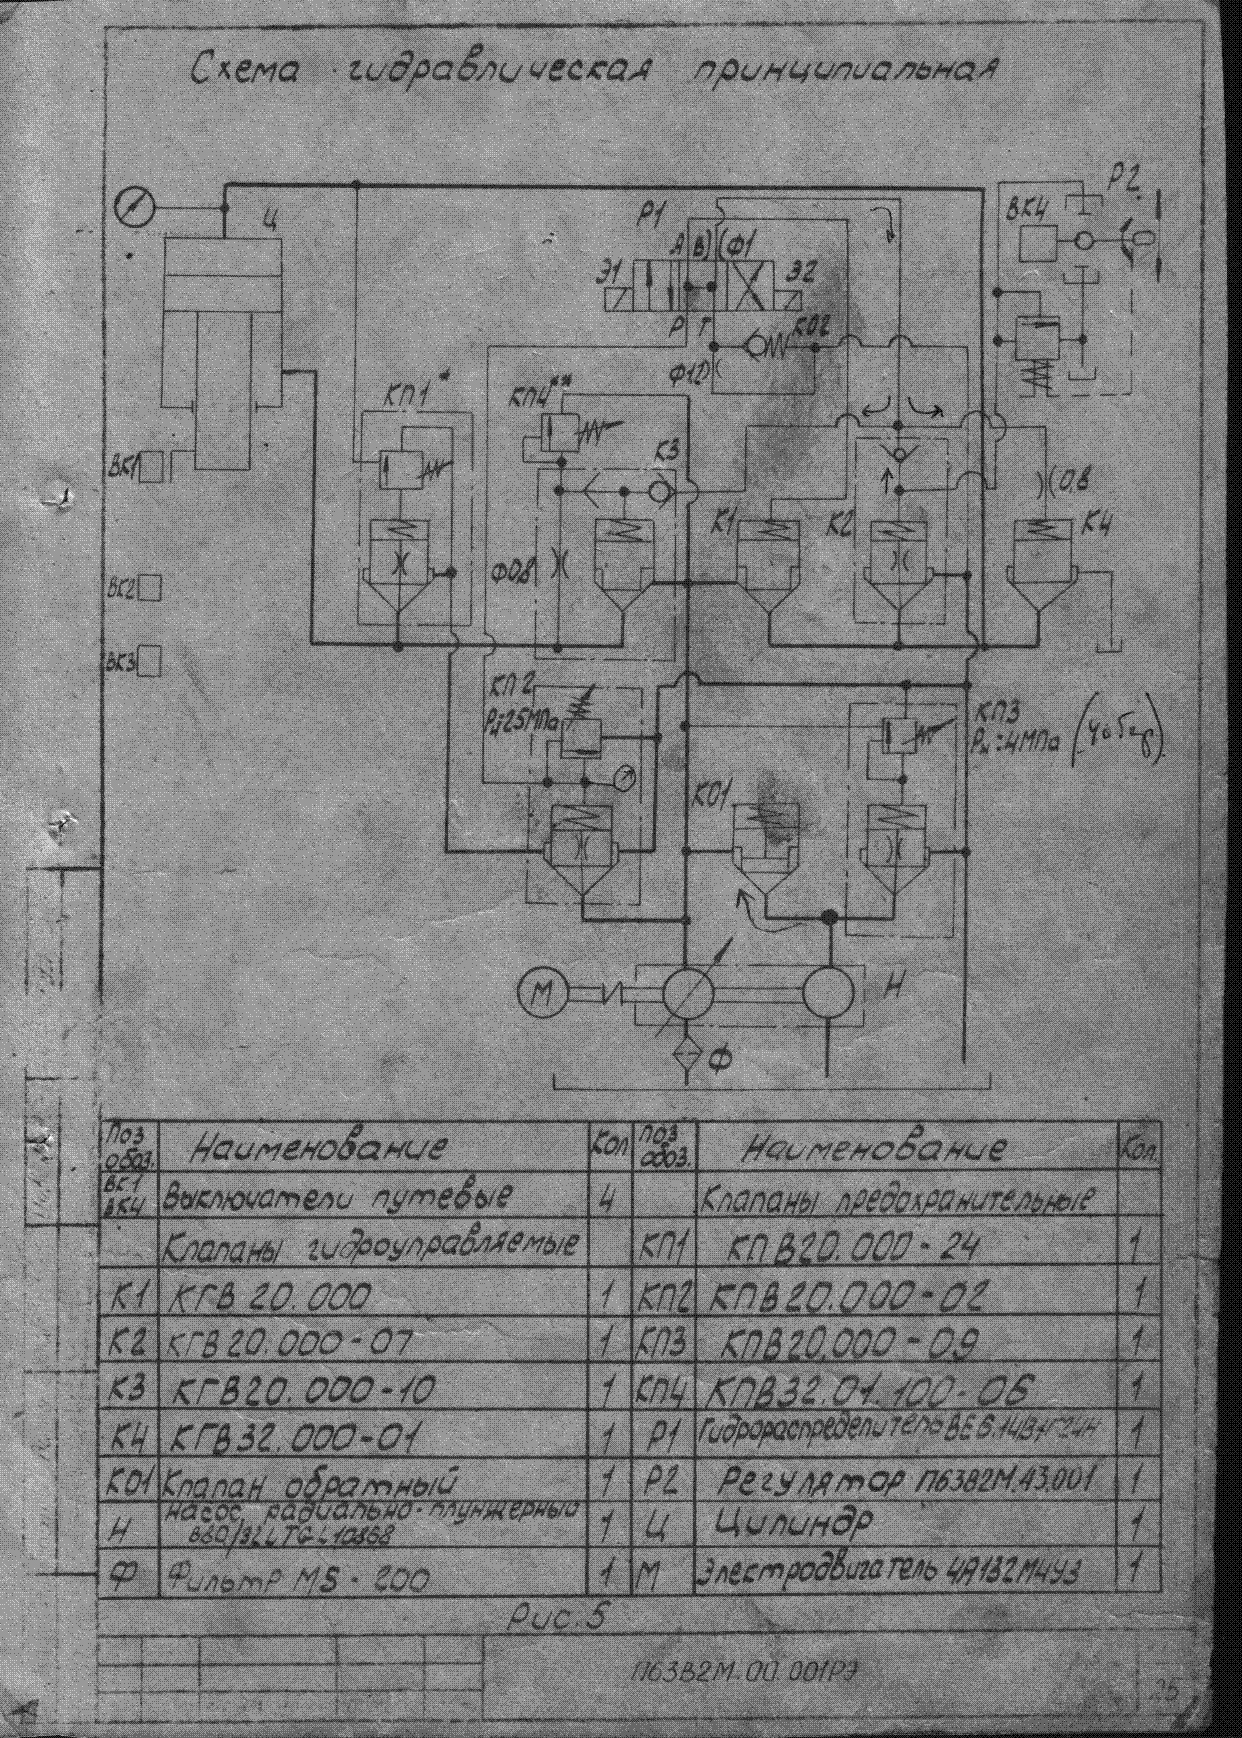 Схема гидравлическая принципиальная
Р2
ВК4
Ц
Р1
А В Ф1
Э1 Э2
Р Т КО2
Ф1,2
КП1*
КП4**
К3
ВК1
0,8
К1 К2 К4
Ф0,8
ВК2
ВК3
КП2
Рн=25МПа
КП3
Рн=4МПа
КО1
М
Н
Ф
Поз обоз. Наименование Кол Поз обоз. Наименование Кол.
ВК1 ВК4 Выключатели путевые 4 Клапаны предохранительные
Клапаны гидроуправляемые КП1 КПВ20.000-24 1
К1 КГВ 20.000 1 КП2 КПВ20.000-02 1
К2 КГВ20.000-07 1 КП3 КПВ20.000-09 1
К3 КГВ20.000-10 1 КП4 КПВ32.01.100-06 1
К4 КГВ32.000-01 1 Р1 Гидрораспределитель 1
КО1 Клапан обратный 1 Р2 Регулятор П63В2М.43.001 1
Н Насос радиально-плунжерный 1 Ц Цилиндр 1
Ф Фильтр MS-200 1 М Электродвигатель 4А132М4У3 1
Рис.5
П63В2М.00.001РЭ
25